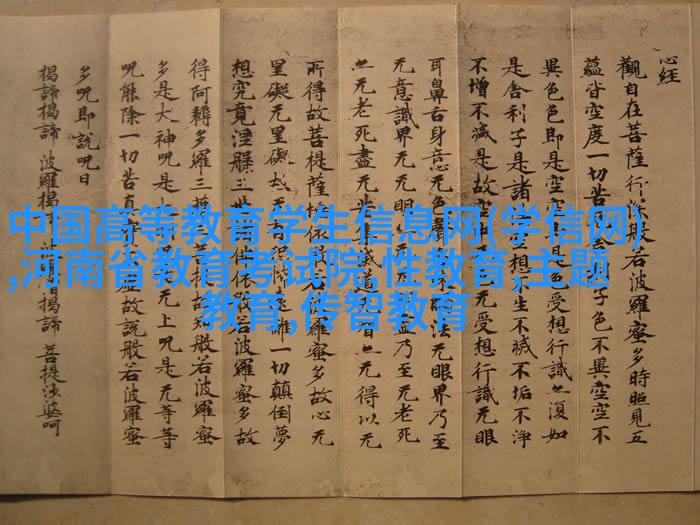 心经
觀自在菩薩行深般若波羅蜜多時照見五
蘊皆空度一切苦子色不異空空不
異色色即是空空是色受想行識亦復如
是舍利子是諸不生不滅不垢不淨
不增不減是故空无受想行識无眼
耳鼻舌身意无色法无眼界乃至
无意識界无无明乃至无老死
亦无老死盡无苦集滅道无智亦无得以无
所得故菩提薩埵依般若波羅蜜多故心无
罣礙无罣礙故无有恐怖遠離一切顛倒夢
想究竟涅槃三世佛依般若波羅蜜多故
得阿耨多羅三菩提故知般若波羅蜜
多是大神呪是无上呪是无等等
呪能除一切苦真故說般若波羅蜜
多呪即說呪曰
揭諦揭諦 波羅揭 波羅僧揭諦 菩提薩婆呵
中国高等教育学生信息网(学信网)
,河南省教育考试院,性教育,主题
教育,传智教育